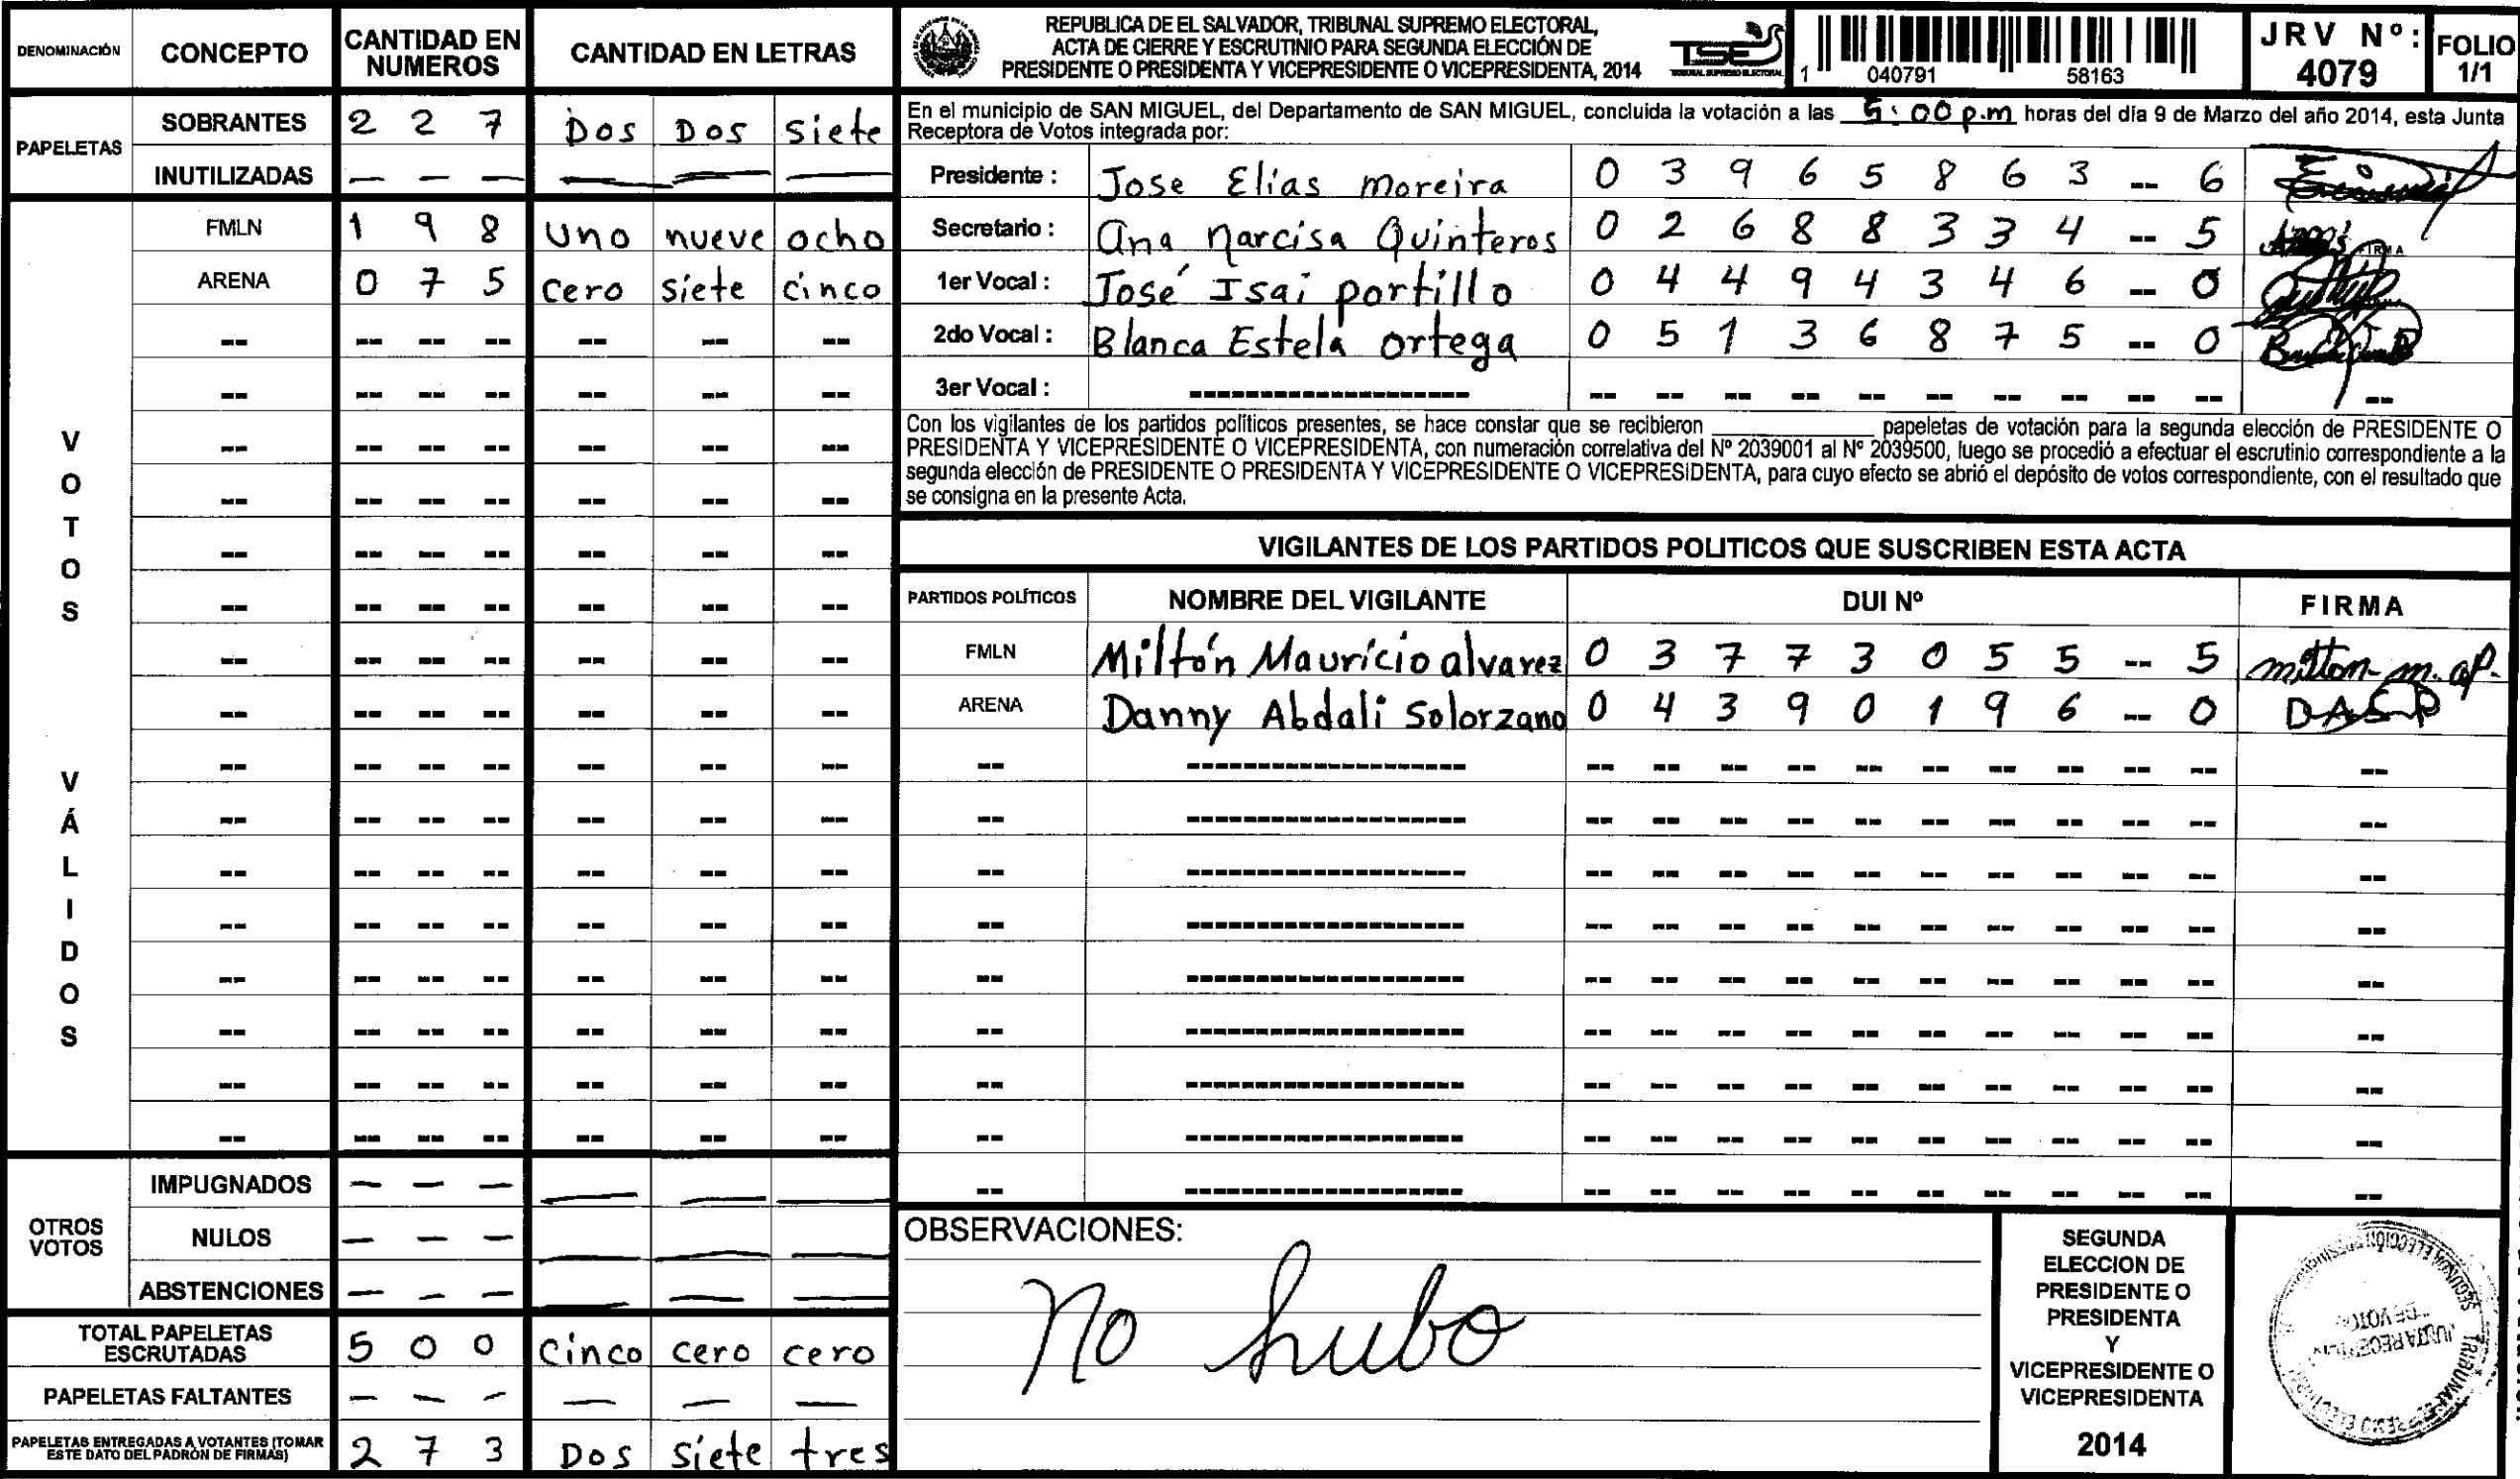 DENOMINACIÓN CONCEPTO CANTIDAD EN NUMEROS CANTIDAD EN LETRAS
PAPELETAS
SOBRANTES 2 2 7 Dos Dos siete
INUTILIZADAS — — — — — —
VOTOS VÁLIDOS
FMLN 1 9 8 Uno nueve ocho
ARENA 0 7 5 cero siete cinco
OTROS VOTOS
IMPUGNADOS — — — — — —
NULOS — — — — — —
ABSTENCIONES — — — — — —
TOTAL PAPELETAS ESCRUTADAS 5 0 0 Cinco cero cero
PAPELETAS FALTANTES — — — — — —
PAPELETAS ENTREGADAS A VOTANTES (TOMAR ESTE DATO DEL PADRÓN DE FIRMAS) 2 7 3 Dos siete tres
REPUBLICA DE EL SALVADOR, TRIBUNAL SUPREMO ELECTORAL,
ACTA DE CIERRE Y ESCRUTINIO PARA SEGUNDA ELECCIÓN DE
PRESIDENTE O PRESIDENTA Y VICEPRESIDENTE O VICEPRESIDENTA, 2014
TSE
TRIBUNAL SUPREMO ELECTORAL
1 040791 58163
JRV Nº: 4079
FOLIO 1/1
En el municipio de SAN MIGUEL, del Departamento de SAN MIGUEL, concluida la votación a las 5:00 p.m horas del día 9 de Marzo del año 2014, esta Junta
Receptora de Votos integrada por:
Presidente : Jose Elias moreira 0 3 9 6 5 8 6 3 -- 6
Secretario : Ana Narcisa Quinteros 0 2 6 8 8 3 3 4 -- 5
1er Vocal : José Isai portillo 0 4 4 9 4 3 4 6 -- 0
2do Vocal : Blanca Estela ortega 0 5 1 3 6 8 7 5 -- 0
3er Vocal : -------------------- -- -- -- -- -- -- -- -- -- -- --
Con los vigilantes de los partidos políticos presentes, se hace constar que se recibieron ____________ papeletas de votación para la segunda elección de PRESIDENTE O
PRESIDENTA Y VICEPRESIDENTE O VICEPRESIDENTA, con numeración correlativa del Nº 2039001 al Nº 2039500, luego se procedió a efectuar el escrutinio correspondiente a la
segunda elección de PRESIDENTE O PRESIDENTA Y VICEPRESIDENTE O VICEPRESIDENTA, para cuyo efecto se abrió el depósito de votos correspondiente, con el resultado que
se consigna en la presente Acta.
VIGILANTES DE LOS PARTIDOS POLITICOS QUE SUSCRIBEN ESTA ACTA
PARTIDOS POLÍTICOS NOMBRE DEL VIGILANTE DUI Nº FIRMA
FMLN Miltón Mauricio alvarez 0 3 7 7 3 0 5 5 -- 5 milton m. ap.
ARENA Danny Abdali Solorzano 0 4 3 9 0 1 9 6 -- 0 DASP
OBSERVACIONES:
No hubo
SEGUNDA
ELECCION DE
PRESIDENTE O
PRESIDENTA
Y
VICEPRESIDENTE O
VICEPRESIDENTA
2014